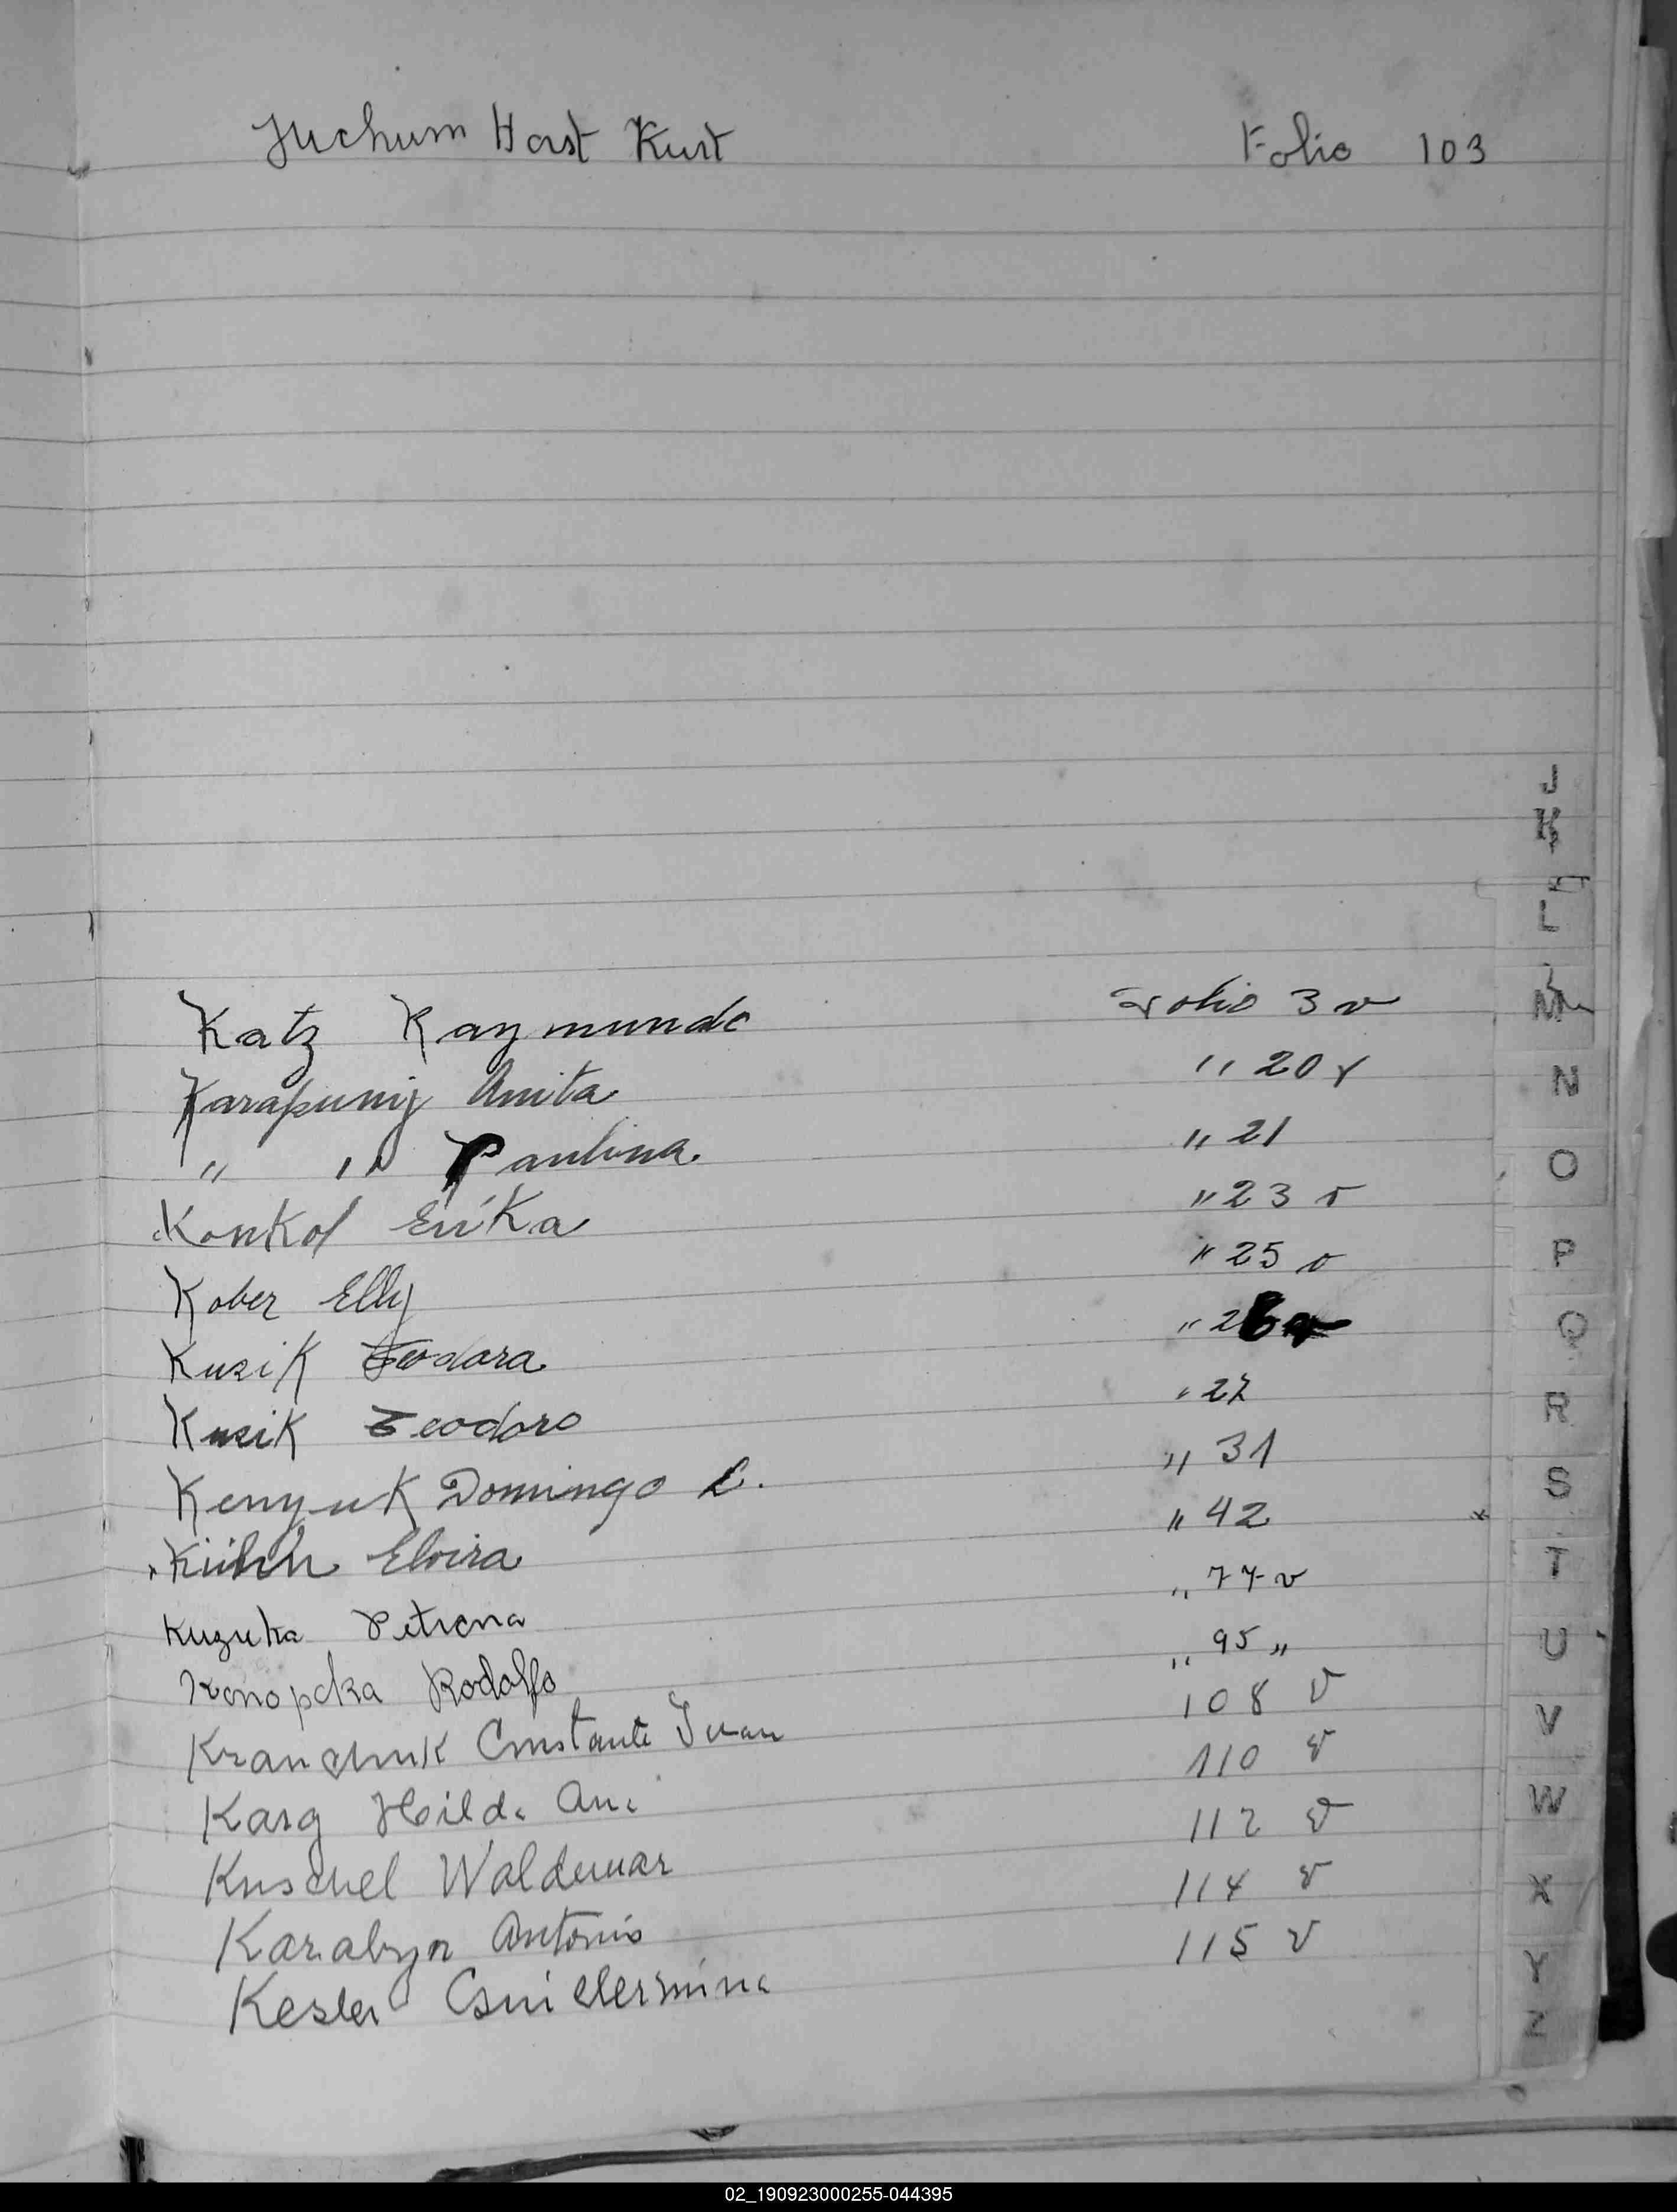 Juchum Horst Kurt Folio 103
Katz Raymundo Folio 3 v
Karapuniz Anita " 20 v
" " Paulina " 21
Konkol Erika " 23 v
Kober Elly " 25 v
Kusik Teodora " 26 v
Kusik Teodoro " 27
Kenyuk Domingo L. " 31
Kühn Elvira " 42
Kuzuka Petrona " 77 v
Konopcka Rodolfo " 95 "
Kranchuk Constante Juan 108 v
Karg Hilda Ana 110 v
Kuschel Waldemar 112 v
Karabyn Antonio 114 v
Kesler Guillermina 115 v
J
K
L
M
N
O
P
Q
R
S
T
U
V
W
X
Y
Z
02_190923000255-044395